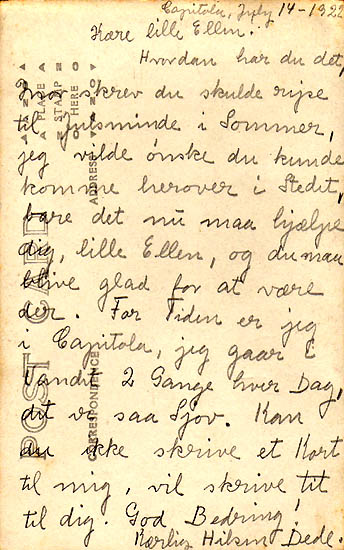 Capitola, July 14-1922
Kære lille Ellen:
Hvordan har du det,
Moar skrev du skulde rejse
til Julsminde i Sommer,
jeg vilde ønske du kunde
komme herover i Stedet,
bare det nu maa hjælpe
dig, lille Ellen, og du maa
blive glad for at være
der. For Tiden er jeg
i Capitola, jeg gaar i
Vandet 2 Gange hver Dag,
det er saa Sjov. Kan
du ikke skrive et Kort
til mig, vil skrive tit
til dig. God Bedring!
Kærlig Hilsen Dede.
POST CARD
CORRESPONDENCE
ADDRESS
PLACE
STAMP
HERE